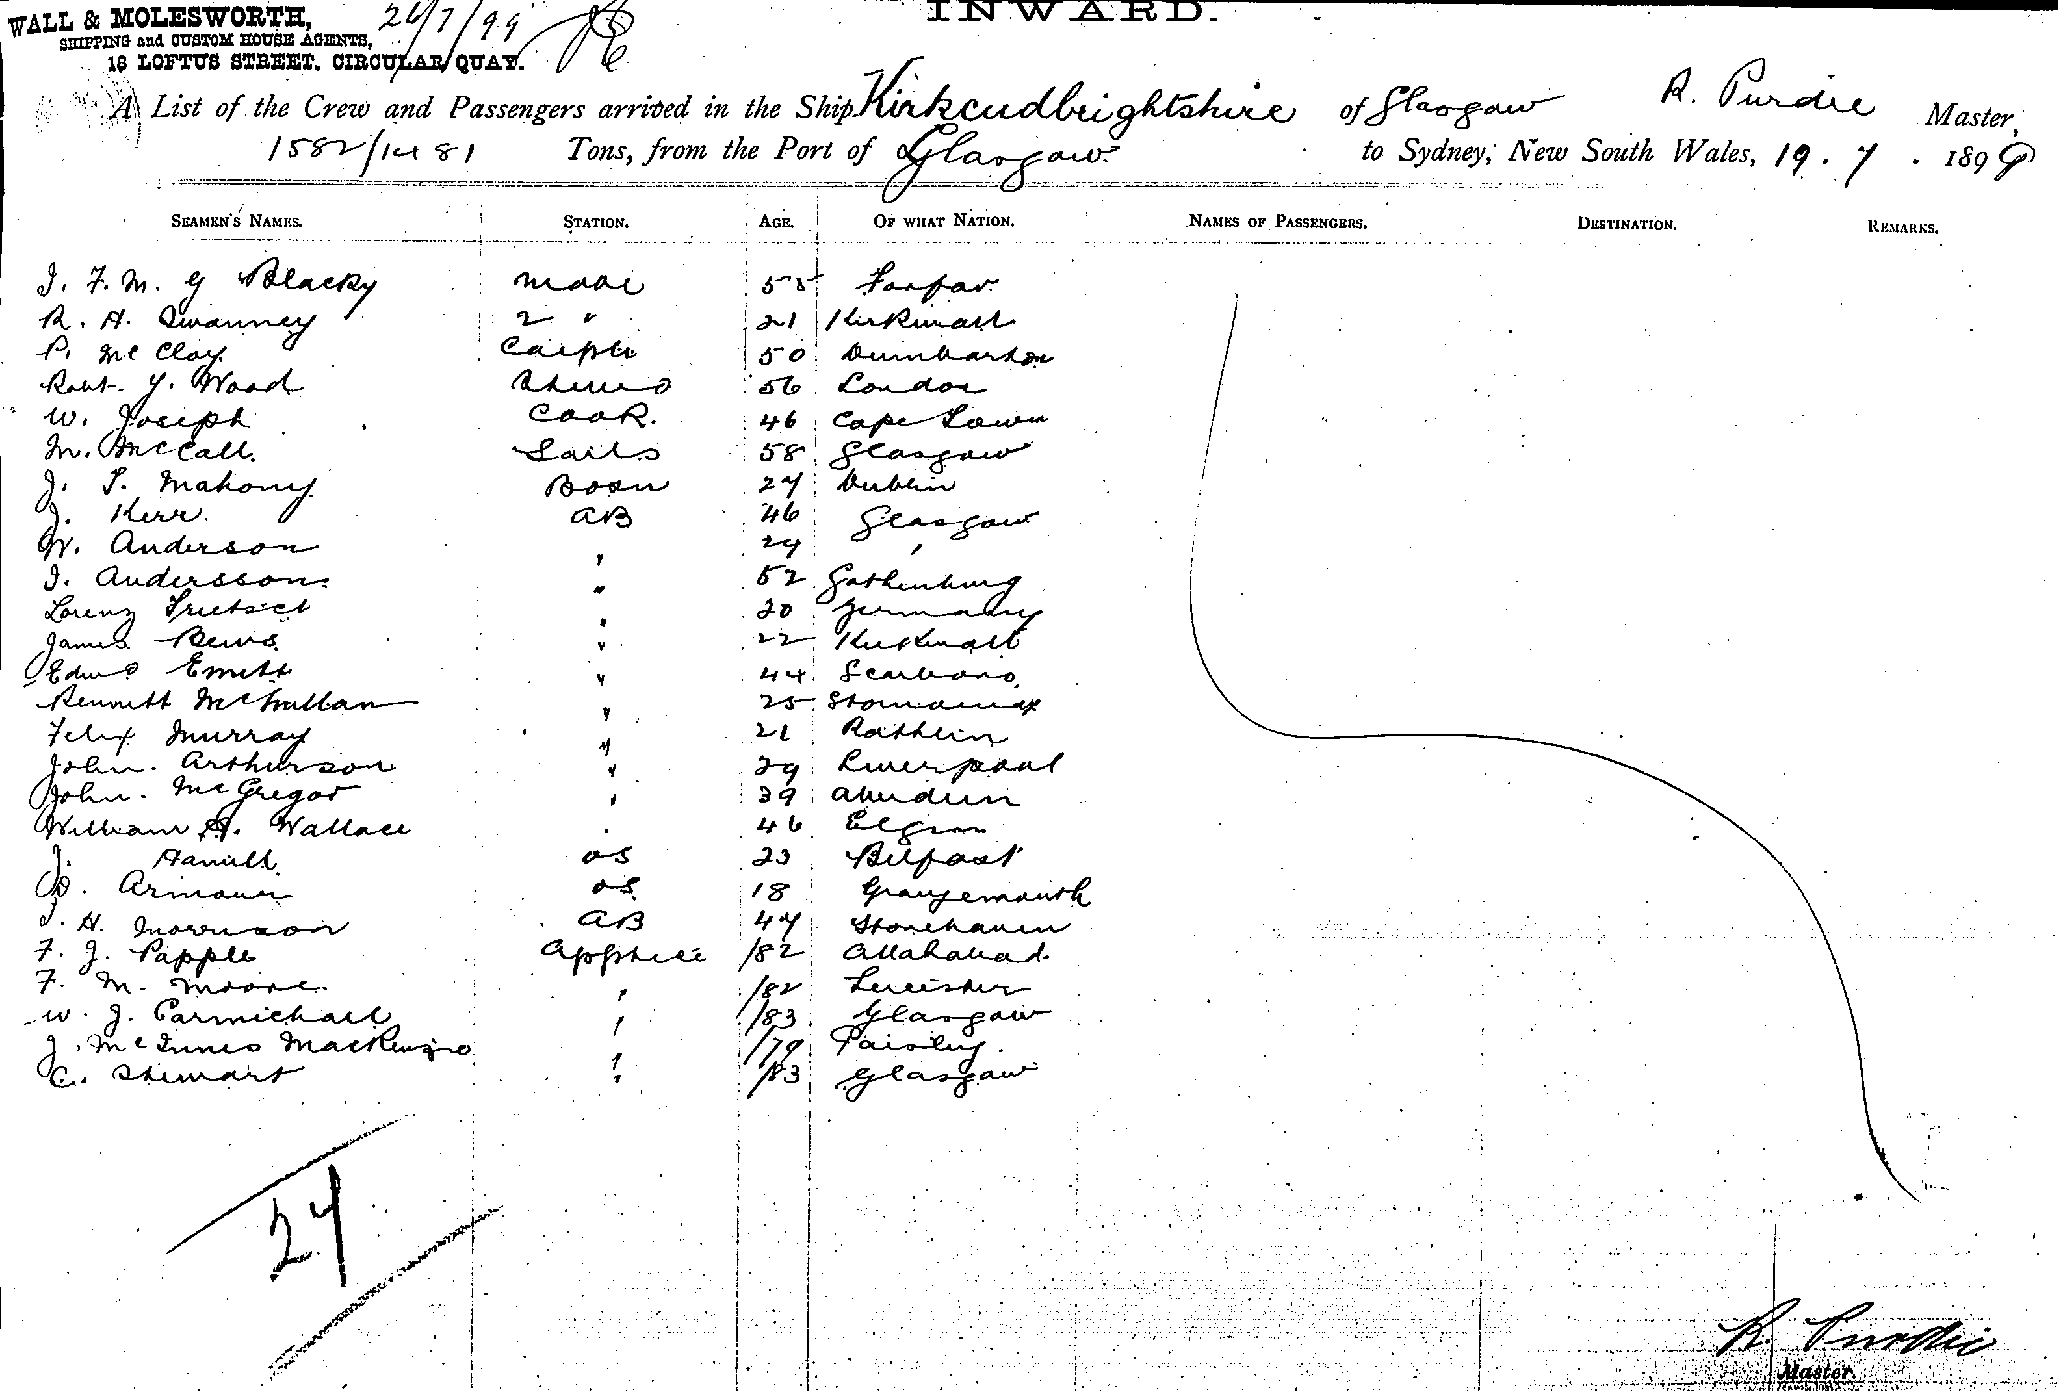 INWARD.
WALL & MOLESWORTH, 24/7/99
SHIPPING and CUSTOM HOUSE AGENTS,
18 LOFTUS STREET. CIRCULAR QUAY.
A List of the Crew and Passengers arrived in the Ship Kirkcudbrightshire of Glasgow R. Purdie Master,
1582/1481 Tons, from the Port of Glasgow to Sydney, New South Wales, 19. 7. 1899
SEAMEN'S NAMES. STATION. AGE. OF WHAT NATION. NAMES OF PASSENGERS. DESTINATION. REMARKS.
J. F. M. G Blacky mate 55 Forfar
R. H. Swanney 2 " 21 Kirkwall
P. McClay Carptr 50 Dumbarton
Robt. Y. Wood Steward 56 London
W. Joseph Cook. 46 Cape Town
M. McCall. Sails 58 Glasgow
J. T. Mahony Bosn 27 Dublin
J. Kerr. AB 46 Glasgow
W. Anderson " 29 "
J. Andersson " 52 Gothenburg
Lorenz " 20 Germany
James Bews " 22 Kirkwall
Edwd Emett " 44 Scarboro
Kennett McMillan " 25 Stornoway
Felix Murray " 21 Rathlin
John. Arthurson " 29 Liverpool
John. McGregor " 39 Aberdeen
William A. Wallace " 46 Elgin
J. Hamill OS 23 Belfast
D. Armour OS 18 Grangemouth
J. H. Morrison AB 47 Stonehaven
F. J. Papple Apptice /82 Allahabad.
F. M. Moore " /82 Leicester
W. J. Carmichael " /83 Glasgow
J. McInnes MacKenzie " /79 Paisley.
C. Stewart " /83 Glasgow
27
R. Purdie
Master.